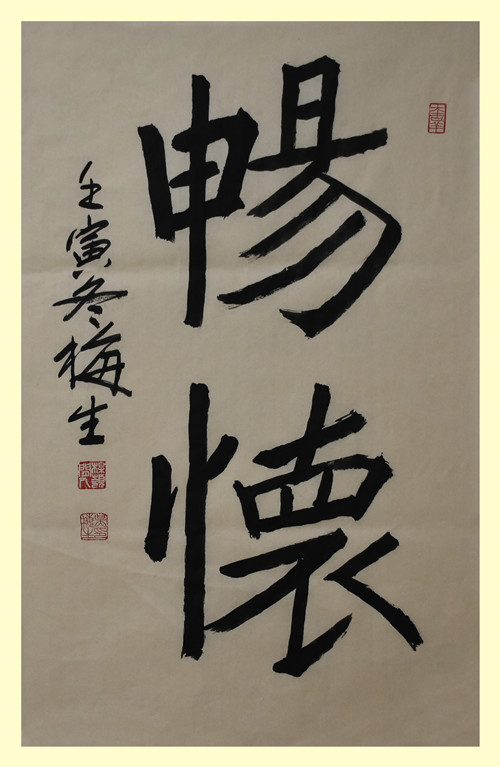 暢懷
壬寅冬梅生